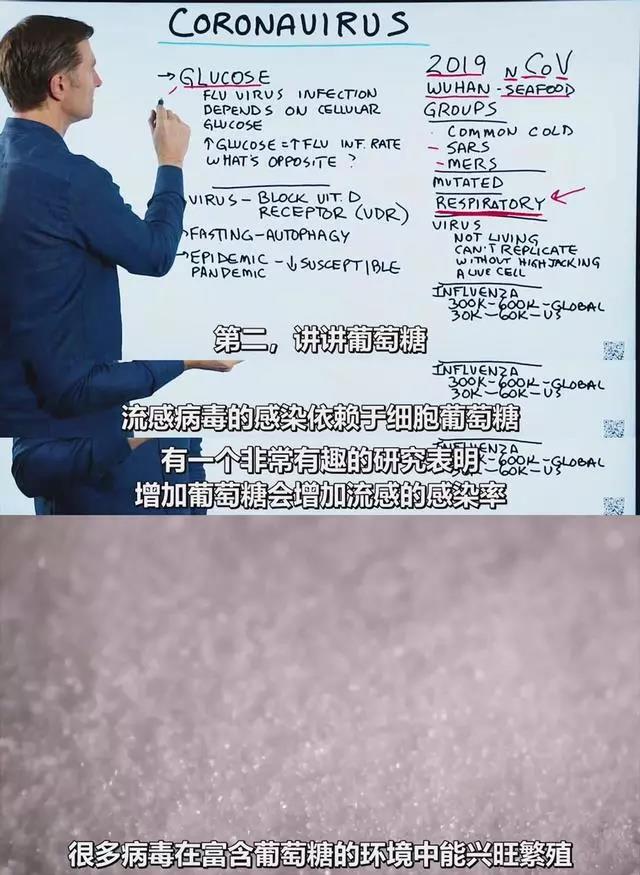 CORONAVIRUS
→GLUCOSE
FLU VIRUS INFECTION
DEPENDS ON CELLULAR
GLUCOSE
↑GLUCOSE=↑FLU INF. RATE
WHAT'S OPPOSITE?
VIRUS-BLOCK VIT. D
RECEPTOR (VDR)
FASTING-AUTOPHAGY
EPIDEMIC -↓SUSCEPTIBLE
PANDEMIC
2019 NCOV
WUHAN-SEAFOOD
GROUPS
COMMON COLD
- SARS
- MERS
MUTATED
RESPIRATORY
VIRUS
NOT LIVING
CAN'T REPLICATE
WITHOUT HIGHJACKING
A LIVE CELL
INFLUENZA
300K-600K-GLOBAL
30K-60K-US
第二，讲讲葡萄糖
INFLUENZA
300K-600K-GLOBAL
30K-60K-US
流感病毒的感染依赖于细胞葡萄糖
INFLUENZA
-600K-GLOBAL
-60K-US
有一个非常有趣的研究表明
增加葡萄糖会增加流感的感染率
很多病毒在富含葡萄糖的环境中能兴旺繁殖